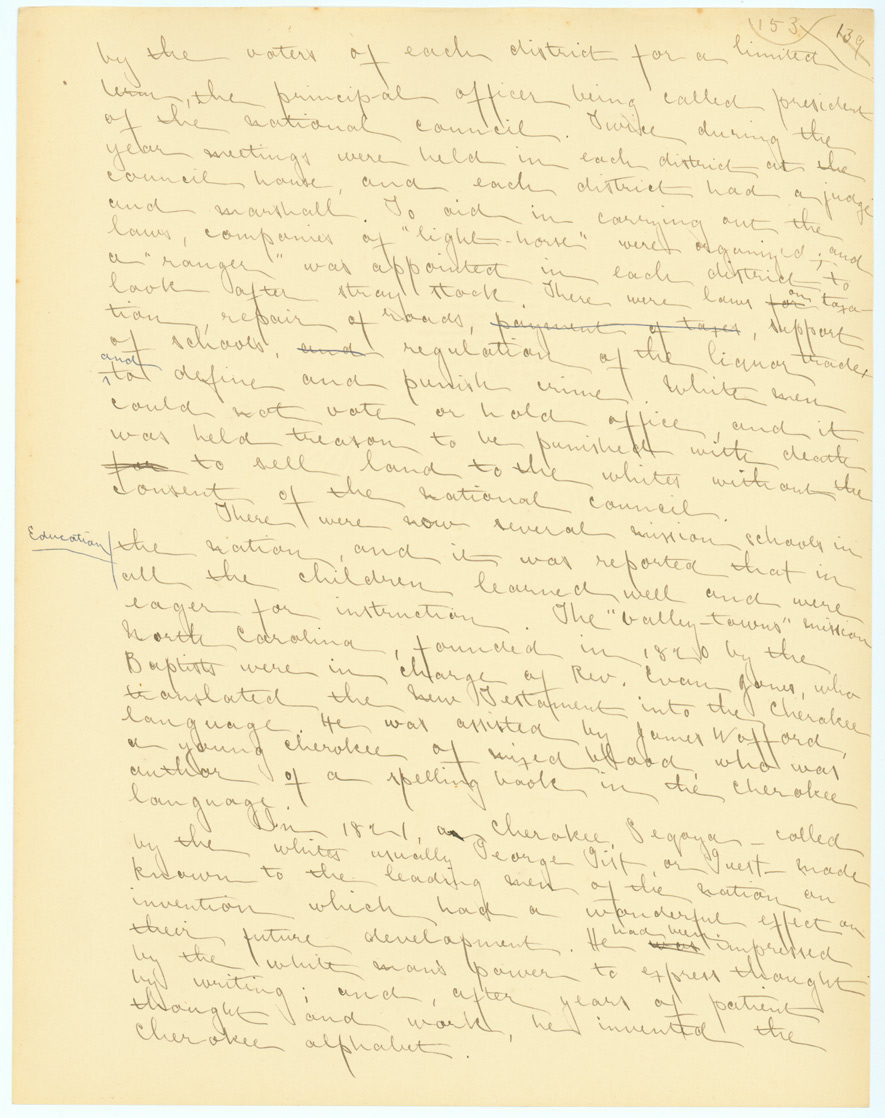 153 139
by the voters of each district for a limited
term, the principal officer being called president
of the national council. Twice during the
year meetings were held in each district at the
council house, and each district had a judge
and marshall. To aid in carrying out the
laws, companies of "light-horse" were organized; and
a "ranger" was appointed in each district, to
look after stray stock. There were laws for on taxa-
tion, repair of roads, payment of taxes, support
of schools, and regulation of the liquor trade,
and
to define and punish crime. White men
could not vote or hold office, and it
was held treason to be punished with death
for to sell land to the whites without the
consent of the national council.
There were now several mission schools in
Education
the nation, and it was reported that in
all the children learned well and were
eager for instruction. The "valley-towns" mission
North Carolina, founded in 1820 by the
Baptists were in charge of Rev. Evan Jones, who
translated the New Testament into the Cherokee
language. He was assisted by James Wafford,
a young Cherokee of mixed blood, who was
author of a spelling book in the Cherokee
language.
In 1821, a Cherokee, Segoya - called
by the whites usually George Gist, or Guest - made
known to the leading men of the nation an
invention which had a wonderful effect on
their future development. He was had been impressed
by the white mans power to express thought
by writing; and, after years of patient
thought and work, he invented the
Cherokee alphabet.